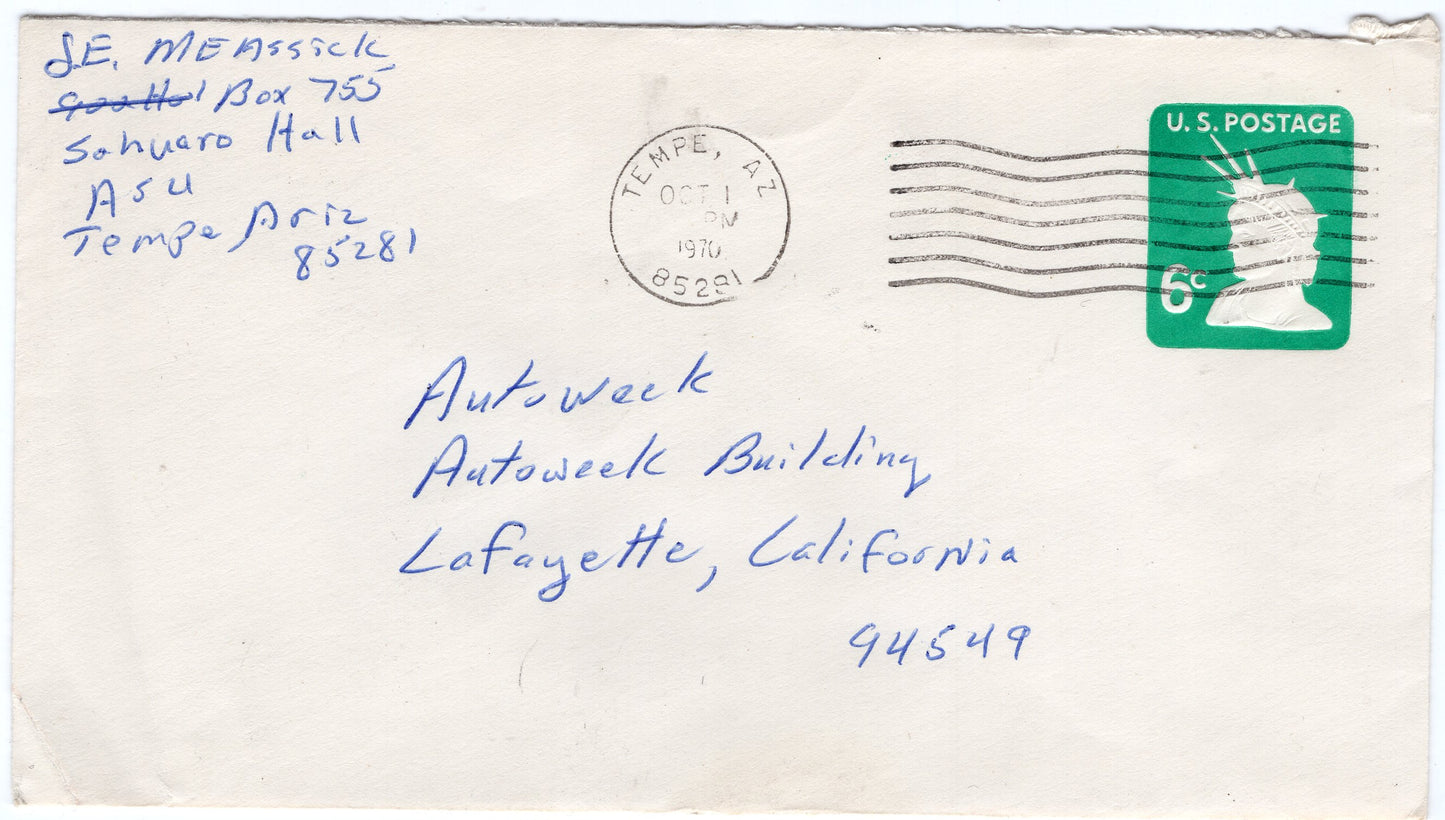 J.E. MEASSick
Box 755
Sahuaro Hall
ASU
Tempe Ariz
85281
TEMPE, AZ
OCT 1
PM
1970
85281
U.S. POSTAGE
6c
Autoweek
Autoweek Building
Lafayette, California
94549